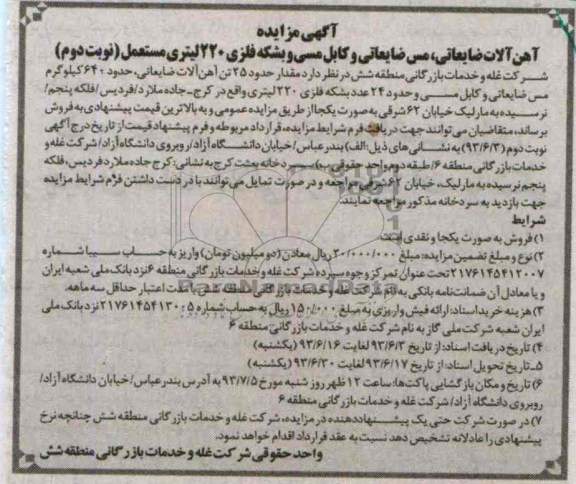 آگهی مزایده
آهن آلات ضایعاتی، مس ضایعاتی و کابل مسی و بشکه فلزی ۲۲۰ لیتری مستعمل (نوبت دوم)
شرکت غله و خدمات بازرگانی منطقه شش در نظر دارد مقدار حدود ۲۵ تن آهن آلات ضایعاتی، حدود ۶۴۰ کیلوگرم
مس ضایعاتی و کابل مسی و حدود ۲۴ عدد بشکه فلزی ۲۲۰ لیتری واقع در کرج-جاده ملارد/فردیس/فلکه پنجم/
نرسیده به مارلیک خیابان ۶۲ شرقی به صورت یکجا از طریق مزایده عمومی و به بالاترین قیمت پیشنهادی به فروش
برساند، متقاضیان می توانند جهت دریافت فرم شرایط مزایده، قرارداد مربوطه و فرم پیشنهاد قیمت از تاریخ درج آگهی
نوبت دوم (۹۳/۶/۳) به نشانی های ذیل: الف) بندرعباس/خیابان دانشگاه آزاد/روبروی دانشگاه آزاد/شرکت غله و
خدمات بازرگانی منطقه ۶/طبقه دوم واحد حقوقی ب) سردخانه بعثت کرج به نشانی: کرج جاده ملارد فردیس، فلکه
پنجم نرسیده به مارلیک، خیابان ۶۲ شرقی مراجعه و در صورت تمایل می توانند با در دست داشتن فرم شرایط مزایده
جهت بازدید به سردخانه مذکور مراجعه نمایند.
شرایط
۱) فروش به صورت یکجا و نقدی است
۲) نوع و مبلغ تضمین مزایده: مبلغ ۲۰/۰۰۰/۰۰۰ ریال معادل (دو میلیون تومان) واریز به حساب سیبا شماره
۲۱۷۶۱۴۵۴۱۲۰۰۷ تحت عنوان تمرکز وجوه سپرده شرکت غله و خدمات بازرگانی منطقه ۶ نزد بانک ملی شعبه ایران
و یا معادل آن ضمانت نامه بانکی به نام شرکت غله و خدمات بازرگانی منطقه شش با مدت اعتبار حداقل سه ماهه.
۳) هزینه خرید اسناد: ارائه فیش واریزی به مبلغ ۱۵۰/۰۰۰ ریال به حساب شماره ۲۱۷۶۱۴۵۴۱۳۰۰۵ نزد بانک ملی
ایران شعبه شرکت ملی گاز به نام شرکت غله و خدمات بازرگانی منطقه ۶
۴) تاریخ دریافت اسناد: از تاریخ ۹۳/۶/۳ لغایت ۹۳/۶/۱۶ (یکشنبه)
۵ـ تاریخ تحویل اسناد: از تاریخ ۹۳/۶/۱۷ لغایت ۹۳/۶/۳۰ (یکشنبه)
۶) تاریخ و مکان بازگشایی پاکت ها: ساعت ۱۲ ظهر روز شنبه مورخ ۹۳/۷/۵ به آدرس بندرعباس/خیابان دانشگاه آزاد/
روبروی دانشگاه آزاد/شرکت غله و خدمات بازرگانی منطقه ۶
۷) در صورت شرکت حتی یک پیشنهاددهنده در مزایده، شرکت غله و خدمات بازرگانی منطقه شش چنانچه نرخ
پیشنهادی را عادلانه تشخیص دهد نسبت به عقد قرارداد اقدام خواهد نمود.
واحد حقوقی شرکت غله و خدمات بازرگانی منطقه شش